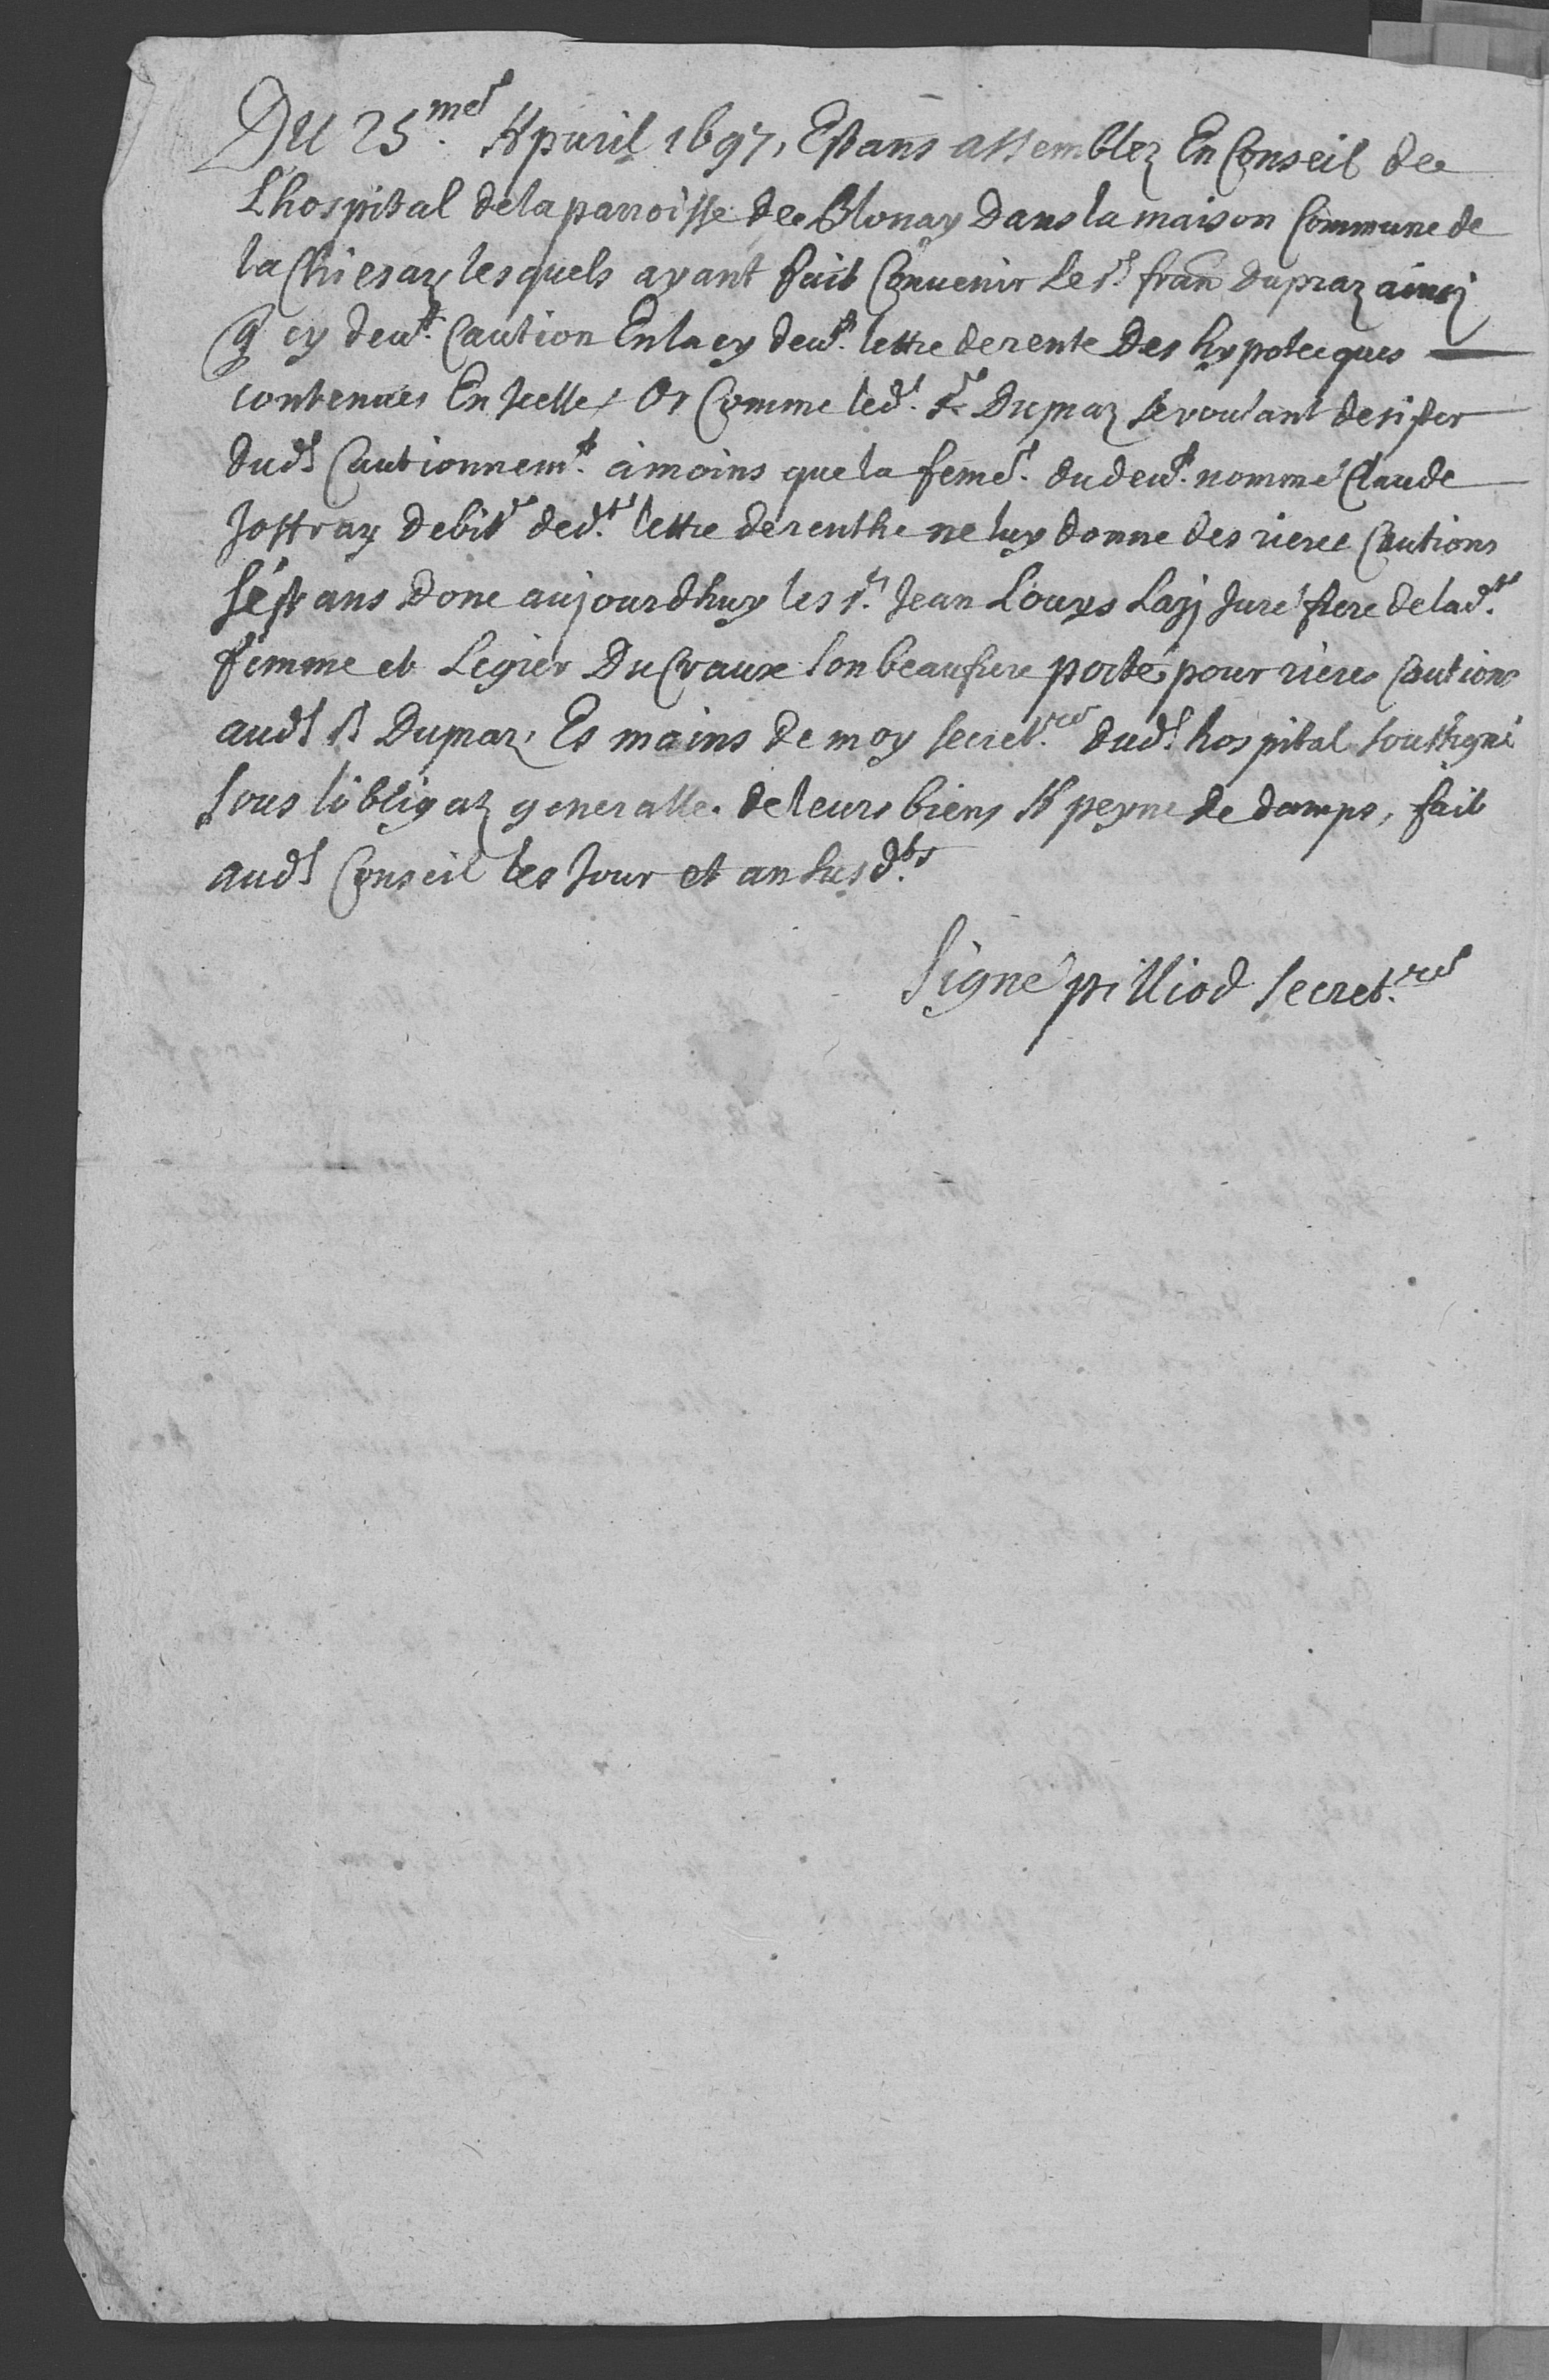 Du 25.me Apuril 1697, Estans assemblez En Conseil de
L'hospital de la parroisse de Blonay Dans la maison Commune de
la Chiesaz, lesquels ayant fait Conuenir Le sr. fran Dupraz ainsj
q cy deut. Caution En la cy deut. lettre de rente Des hypotecques
contenues En Jcelle, Or Comme led. sr Dupraz Se voulant desister
dudt Cautionnemt. à moins que la feme. du deut. nommé Claude
Joffray debitr dedte. lettre de renthe ne luy donne des riere Cautions
S'éstans Donc aujourdhuy les srs. Jean Louys Layj Juré frere de ladte.
femme et Legier Du Craux son beaufrere porté pour rieres Cautions
audt sr Dupraz, Es mains de moy secret.re dudt hospital soussigné
Sous l'obligaz generalle. de leurs biens A peyne de damps, fait
audt Conseil les Jour et an susd.ts
Signé pilliod secret.re